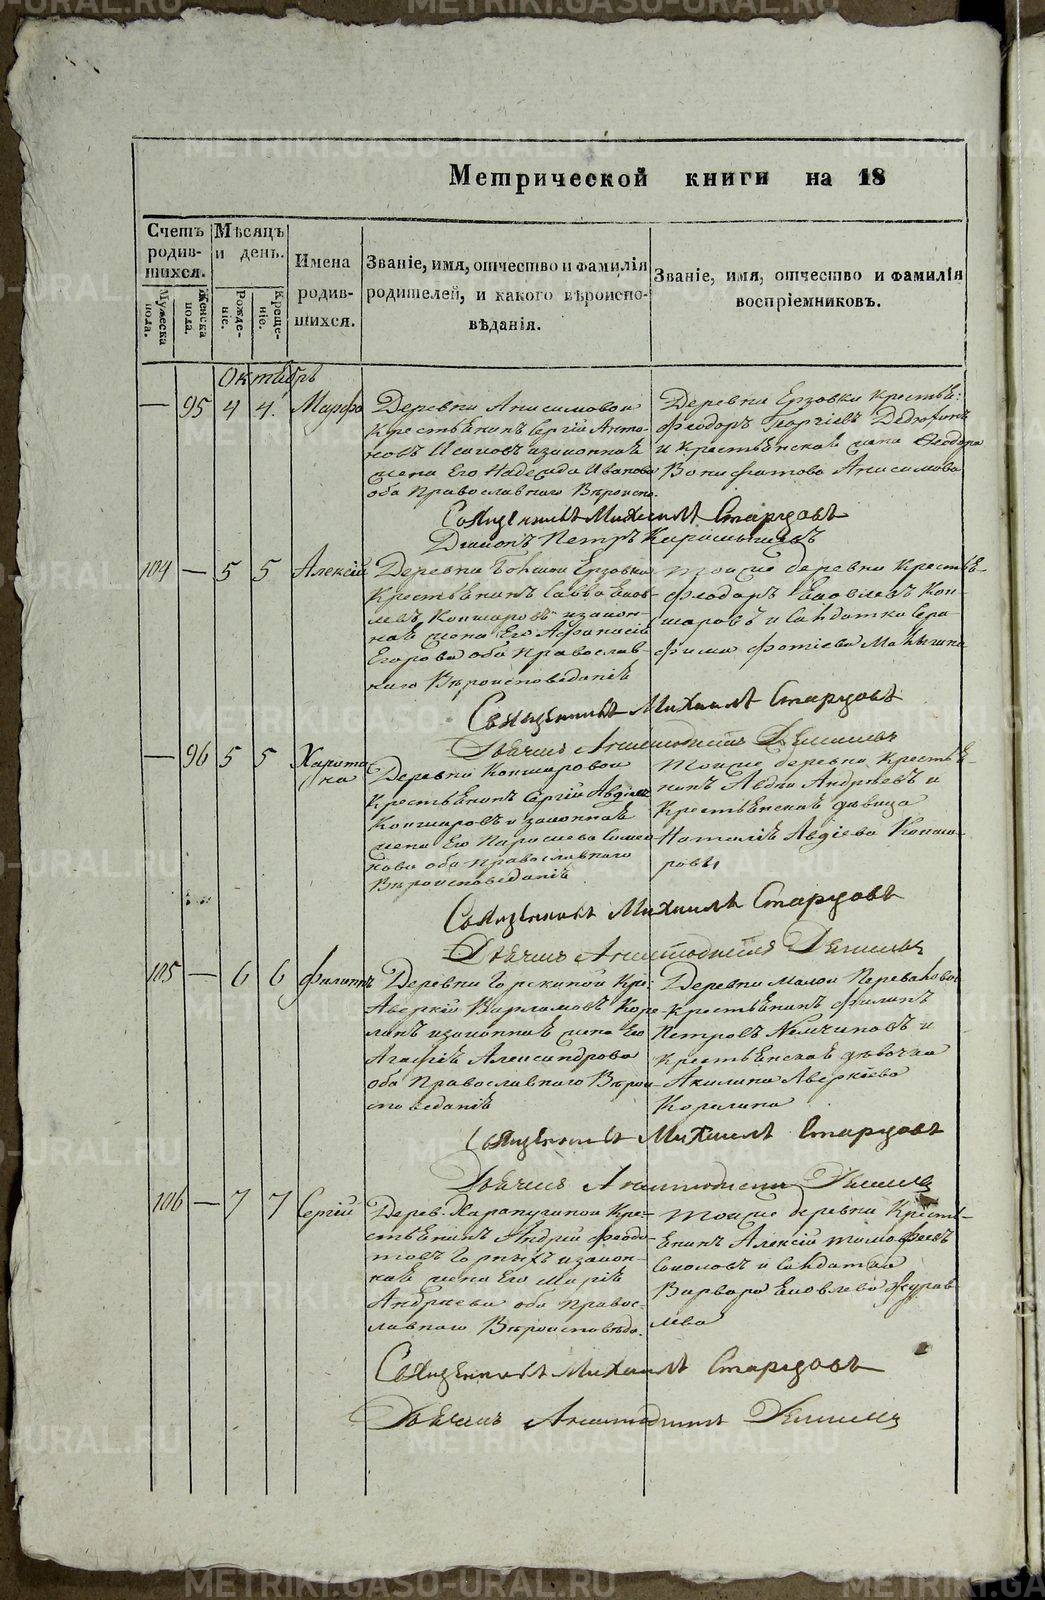 METRIKI.GASO-URAL.RU
Метрической книги на 18
Счетъ родив-шихся.
Мужеска пола.
Женска пола.
Мѣсяцъ и день.
Рожде-ніе.
Креще-ніе.
Имена родив-шихся.
Званіе, имя, отчество и фамилія родителей, и какого вѣроиспо-вѣданія.
Званіе, имя, отчество и фамилія воспріемниковъ.
Октябрь
— 95 4 4. Марфа
Деревни Анисимовой
крестьянинъ Сергій Анто-
новъ Исаковъ и законная
жена Его Надежда Иванова
оба Православнаго Вѣроиспо.
Деревни Ерзовки крестья:
Феодоръ Георгіевъ
и крестьянская жена Феодора
Вонифатова Анисимова
Священникъ Михаилъ Старцовъ
Діаконъ Петръ
104 — 5 5 Алексій
Деревни Ерзовки
крестьянинъ Савва Яков-
левъ Кокшаровъ и закон-
ная жена Его Афанасія
Егорова оба Православ-
наго Вѣроисповеданія
тойже деревни крестья-
Феодоръ Яковлевъ Кок-
шаровъ и Солдатка Сера-
фима Фотіева
Священникъ Михаилъ Старцовъ
Дьячекъ
— 96 5 5 Харито
на
Деревни Кокшаровой
крестьянинъ Сергій Авдіевъ
Кокшаровъ и законная
жена Его Параскева Симео
нова оба православнаго
Вѣроисповеданія
тойже деревни крестья-
нинъ Авдій Андреевъ и
Крестьянская дѣвица
Наталія Авдіева Кокша-
ровы
Священникъ Михаилъ Старцовъ
Дьячекъ
105 — 6 6 Филиппъ
Деревни Горскиной Кре:
Аверкій Варламовъ Коре-
линъ и законная жена Его
Агафія Александрова
оба Православнаго Вѣрои
споведанія
Деревни малой
крестьянинъ Филипъ
Петровъ Немчиновъ и
крестьянская дѣвочка
Акилина Аверкіева
Корелина
Священникъ Михаилъ Старцовъ
Дьячекъ
106 — 7 7 Сергій
Дерев. Кре-
стьянинъ Андрей Феодо-
товъ Горныхъ и закон-
ная жена Его Марія
Андреева оба Правос-
лавнаго Вѣроисповѣда.
тойже деревни Крестья-
янинъ Алексій Тимофеевъ
Соколовъ и Солдатка
Варвара Яковлева Журав
лева
Священникъ Михаилъ Старцовъ
Дьячекъ